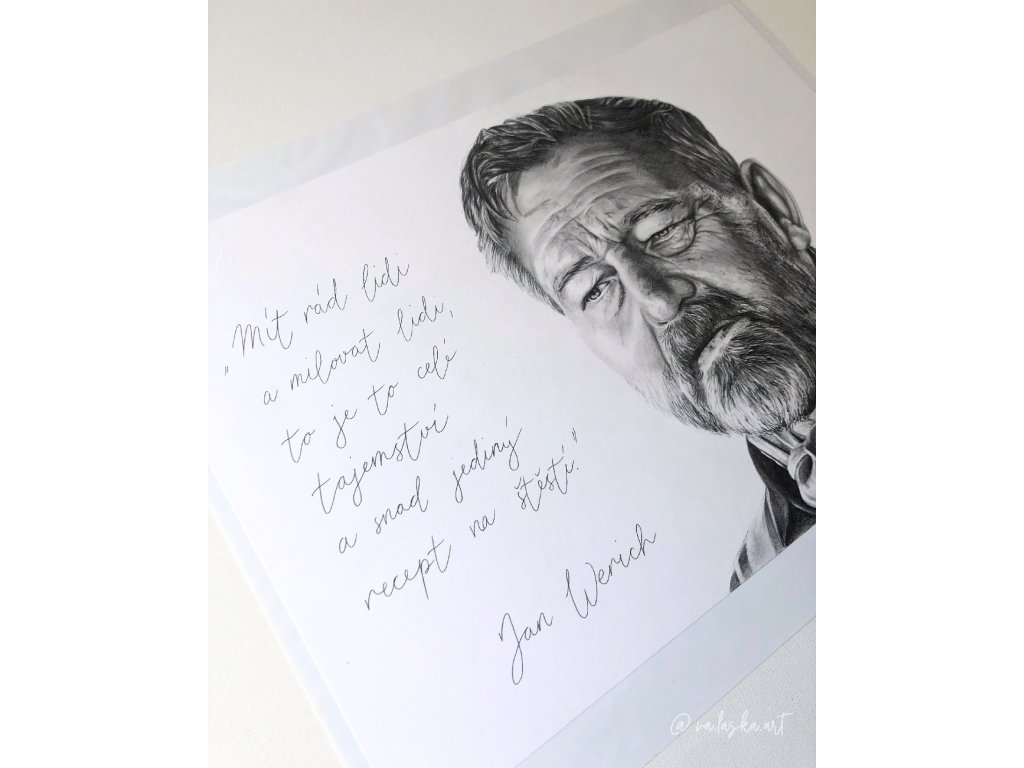 "Mít rád lidi
a milovat lidi,
to je to celé
tajemství
a snad jediný
recept na štěstí."
Jan Werich
@va.laska.art